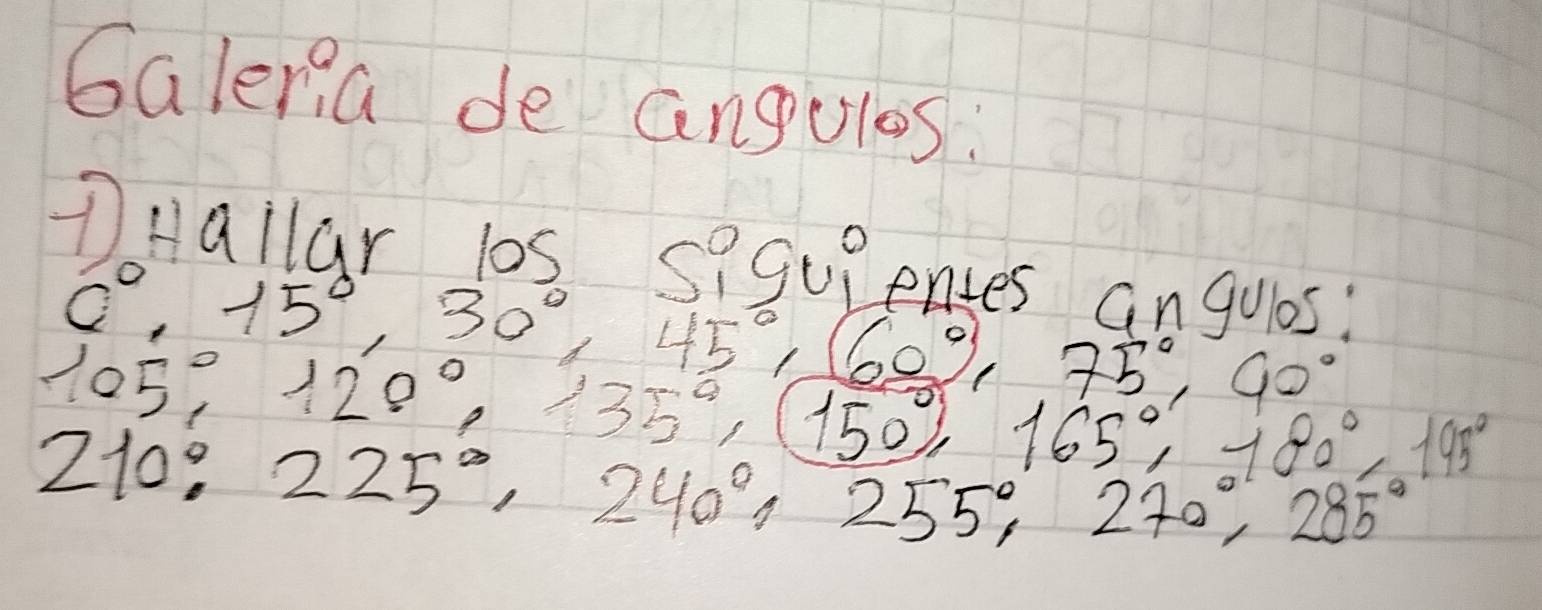 Galeria de angulos:
1) Hallar los siguientes angulos:
0°, 15°, 30°, 45°, 60°, 75°, 90°
105°, 120°, 135°, 150°, 165°, 180°, 195°
210°, 225°, 240°, 255°, 270°, 285°